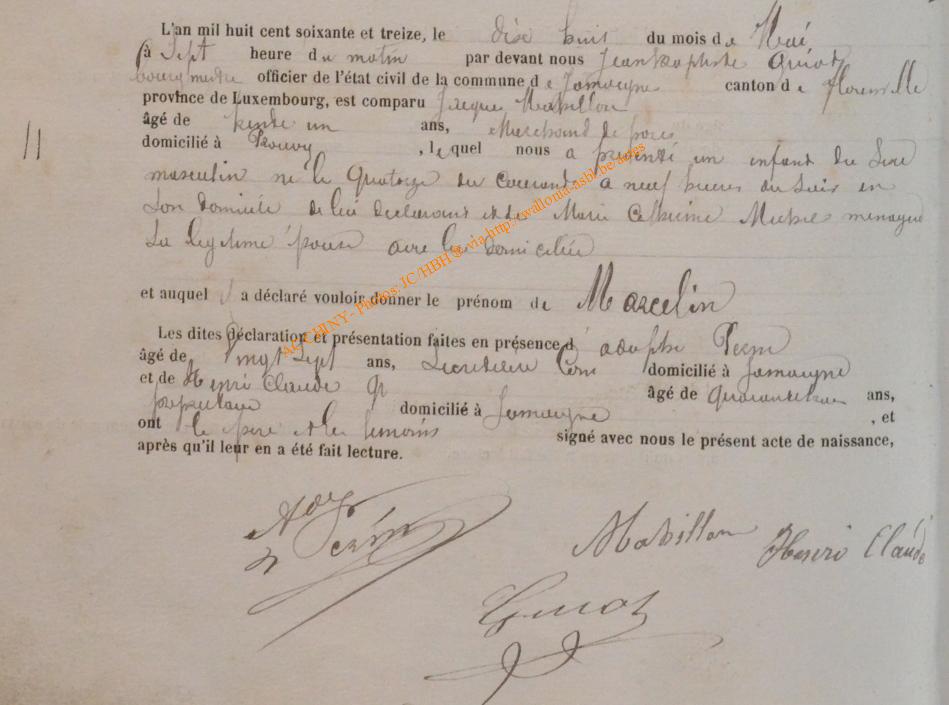 L'an mil huit cent soixante et treize, le dix huit du mois de Mai
à Sept heure du matin par devant nous Jean Baptiste
bourgmestre officier de l'état civil de la commune de Jamoigne canton de Florenville
province de Luxembourg, est comparu Jacque Mabillon
âgé de trente un ans, Marchand de porcs
domicilié à Prouvy, lequel nous a présenté un enfant du Sexe
11
masculin né le Quatorze du Courant à neuf heures du Soir en
Son domicile de lui declarant et de Marie Catherine menagere
Sa legitime épouse avec lui domiciliée
et auquel il a déclaré vouloir donner le prénom de Marcelin
Les dites déclaration et présentation faites en présence d adolphe
âgé de vingt Sept ans, Secretaire Com domicilié à Jamoigne
et de Henri Claude âgé de ans,
propriétaire domicilié à Jamoigne, et
ont le père et les temoins signé avec nous le présent acte de naissance,
après qu'il leur en a été fait lecture.
Mabillon Henri Claude
AC CHINY - Photos: JC/HBH @ via http://wallonia-asbl.be/actes